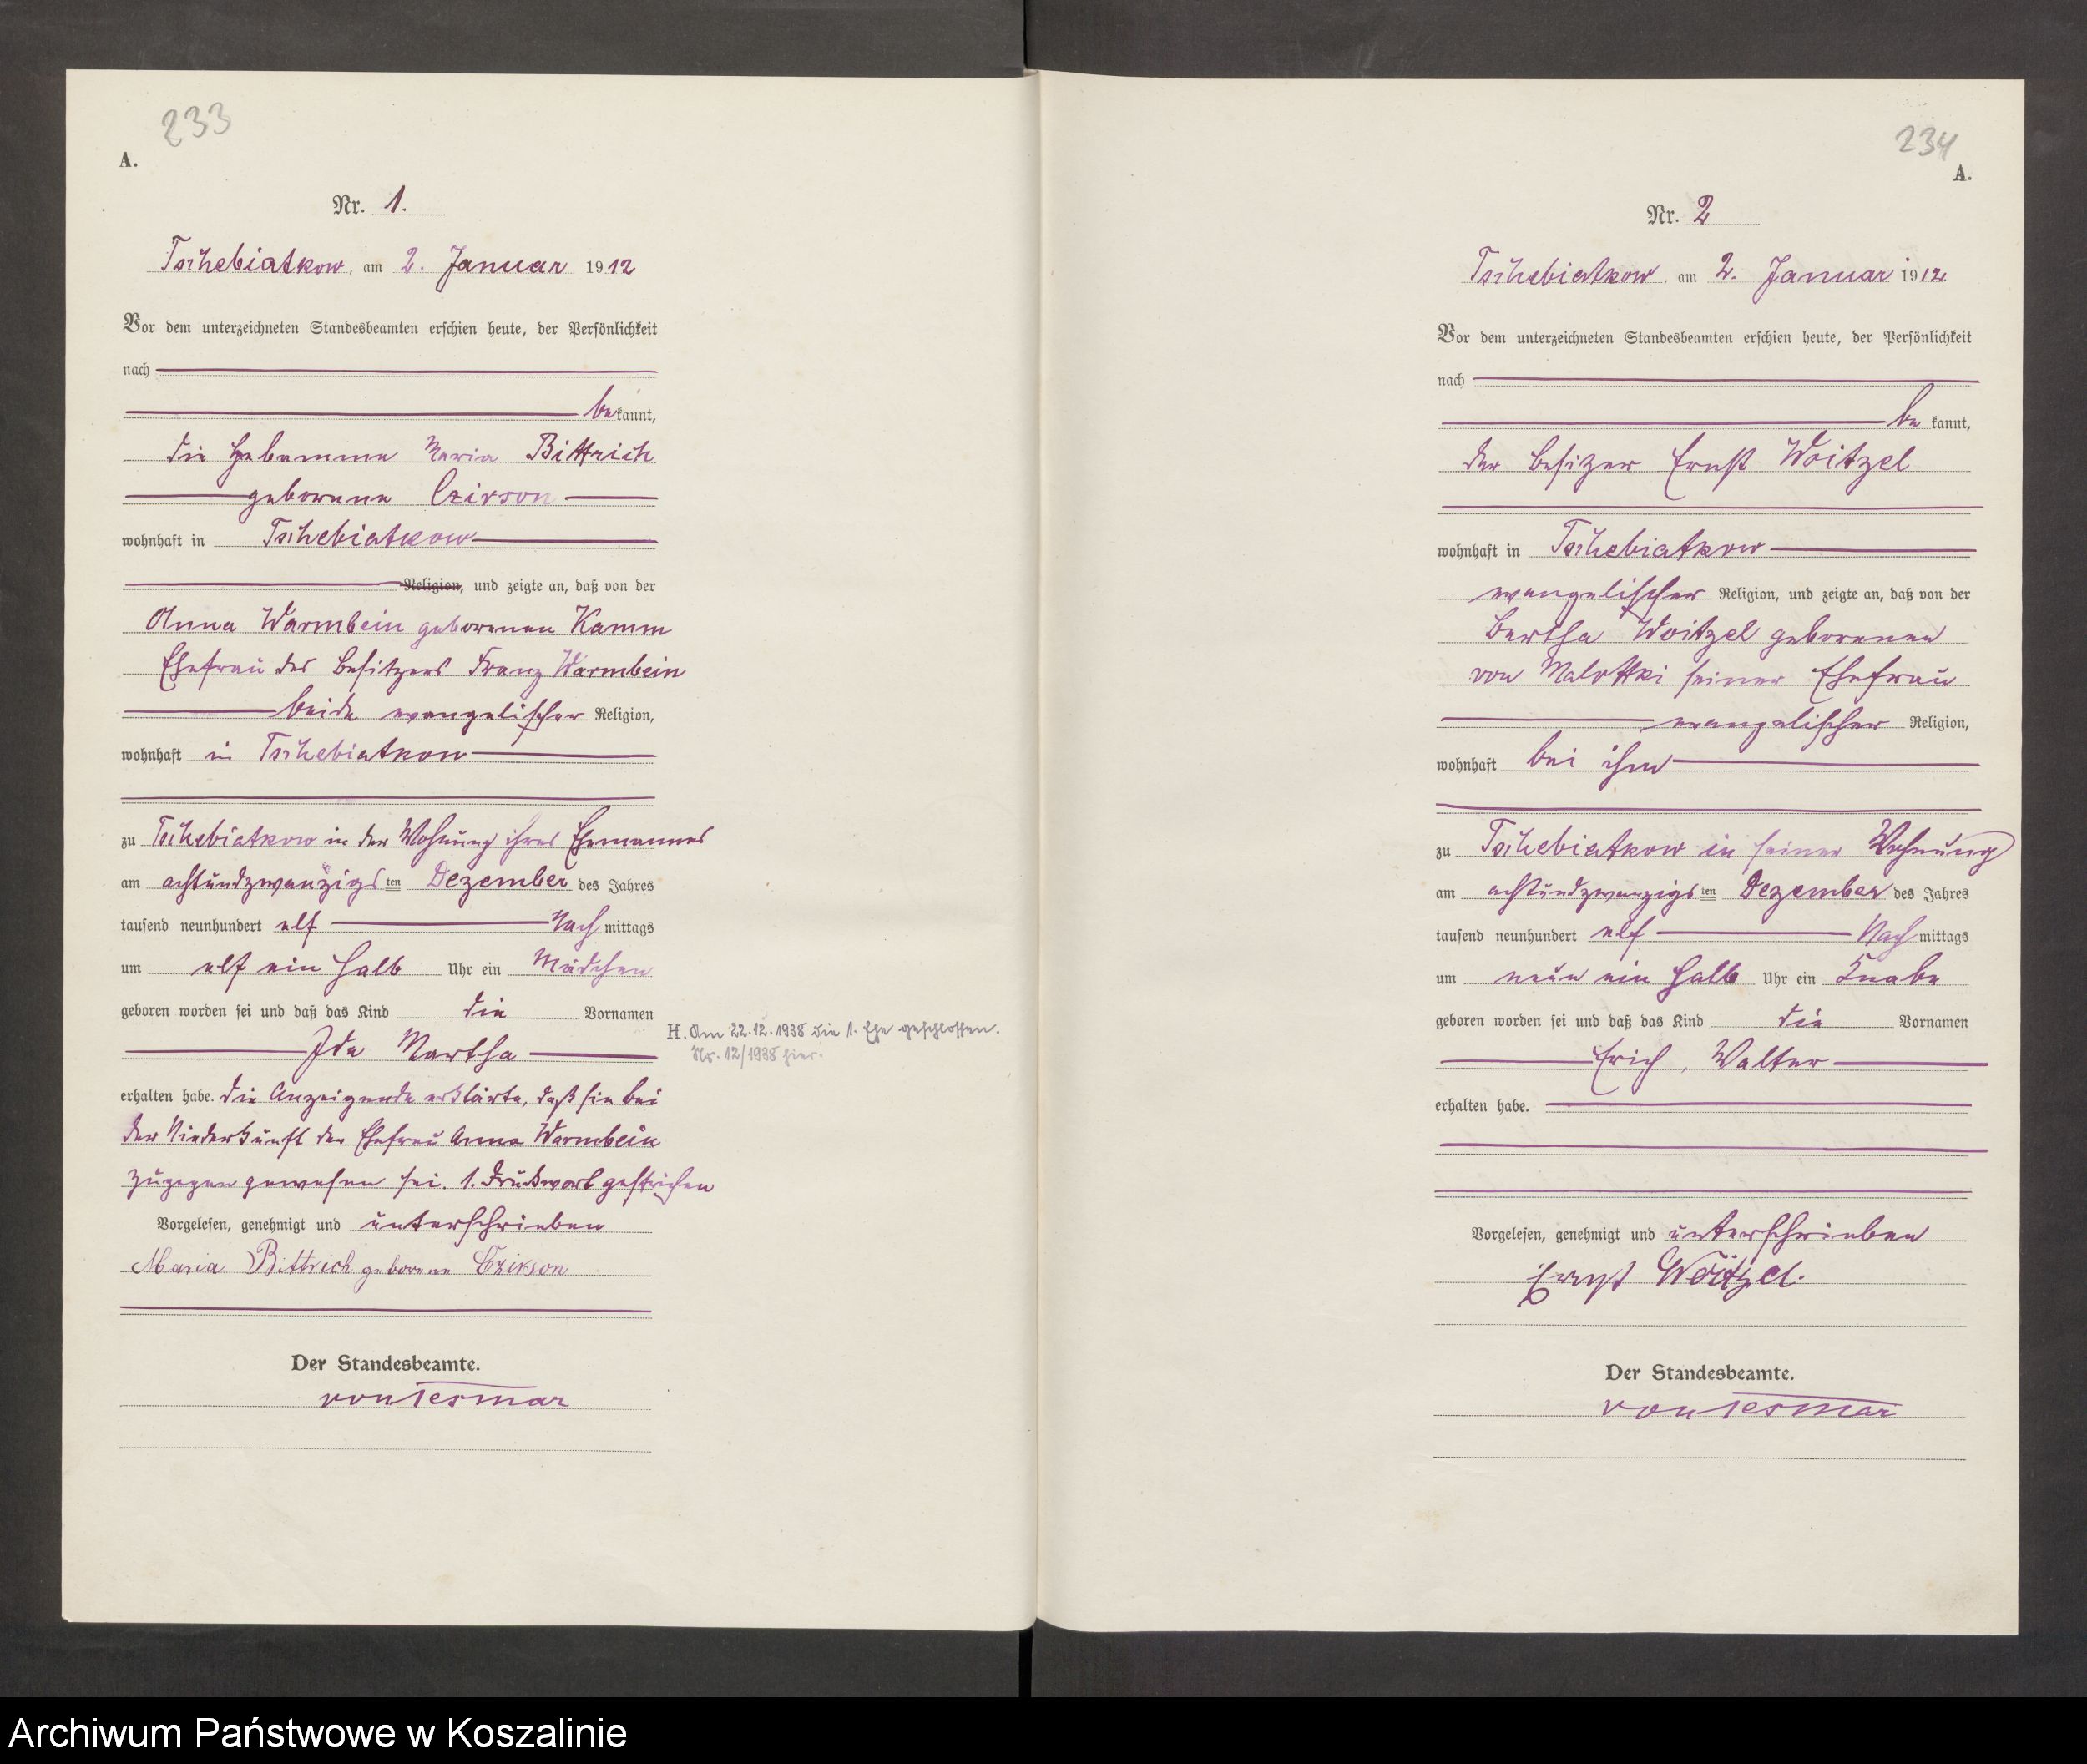 233
A.
Nr. 1.
Tschebiatkow, am 2. Januar 1912
Vor dem unterzeichneten Standesbeamten erschien heute, der Persönlichkeit
nach
bekannt,
die Hebamme Maria Bittrich
geborene Czirson
wohnhaft in Tschebiatkow
Religion, und zeigte an, daß von der
Anna Warmbein geborenen Kamm
Ehefrau des Besitzers Franz Warmbein
beide evangelischer Religion,
wohnhaft in Tschebiatkow
zu Tschebiatkow in der Wohnung ihres Ehemannes
am achtundzwanzigsten Dezember des Jahres
tausend neunhundert elf Nachmittags
um elf ein halb Uhr ein Mädchen
geboren worden sei und daß das Kind die Vornamen
Ida Martha
erhalten habe. Die Anzeigende erklärte, daß sie bei
der Niederkunft der Ehefrau Anna Warmbein
zugegen gewesen sei. 1. Druckwort gestrichen
Vorgelesen, genehmigt und unterschrieben
Maria Bittrich geborene Czirson
Der Standesbeamte.
von Tesmar
H. Am 22.12.1938 die 1. Ehe geschlossen.
Nr. 12/1938 hier.
234
A.
Nr. 2
Tschebiatkow, am 2. Januar 1912
Vor dem unterzeichneten Standesbeamten erschien heute, der Persönlichkeit
nach
be kannt,
der Besitzer Ernst Woitzel
wohnhaft in Tschebiatkow
evangelischer Religion, und zeigte an, daß von der
Bertha Woitzel geborenen
von Malottki seiner Ehefrau
evangelischer Religion,
wohnhaft bei ihm
zu Tschebiatkow in seiner Wohnung
am achtundzwanzigsten Dezember des Jahres
tausend neunhundert elf Nachmittags
um neun ein halb Uhr ein Knabe
geboren worden sei und daß das Kind die Vornamen
Erich, Walter
erhalten habe.
Vorgelesen, genehmigt und unterschrieben
Ernst Woitzel.
Der Standesbeamte.
von Tesmar
Archiwum Państwowe w Koszalinie